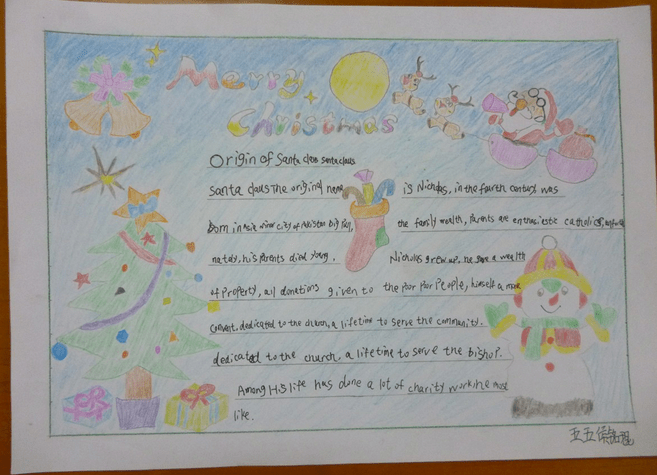 Merry
Christmas
Origin of Santa claus santa claus
santa claus The original name is Nicholas, in the fourth century was
Born in asia minor city of big, the family wealth, parents are enthusiastic catholics,
nately, his parents died young. Nicholas grew up, he gave a wealth
of property, all donations given to the poor poor People, himself a more
Convent, dedicated to the church, a lifetime to serve the community.
dedicated to the church, a lifetime to serve the bishop.
Among His life has done a lot of charity work, he most
like.
五五